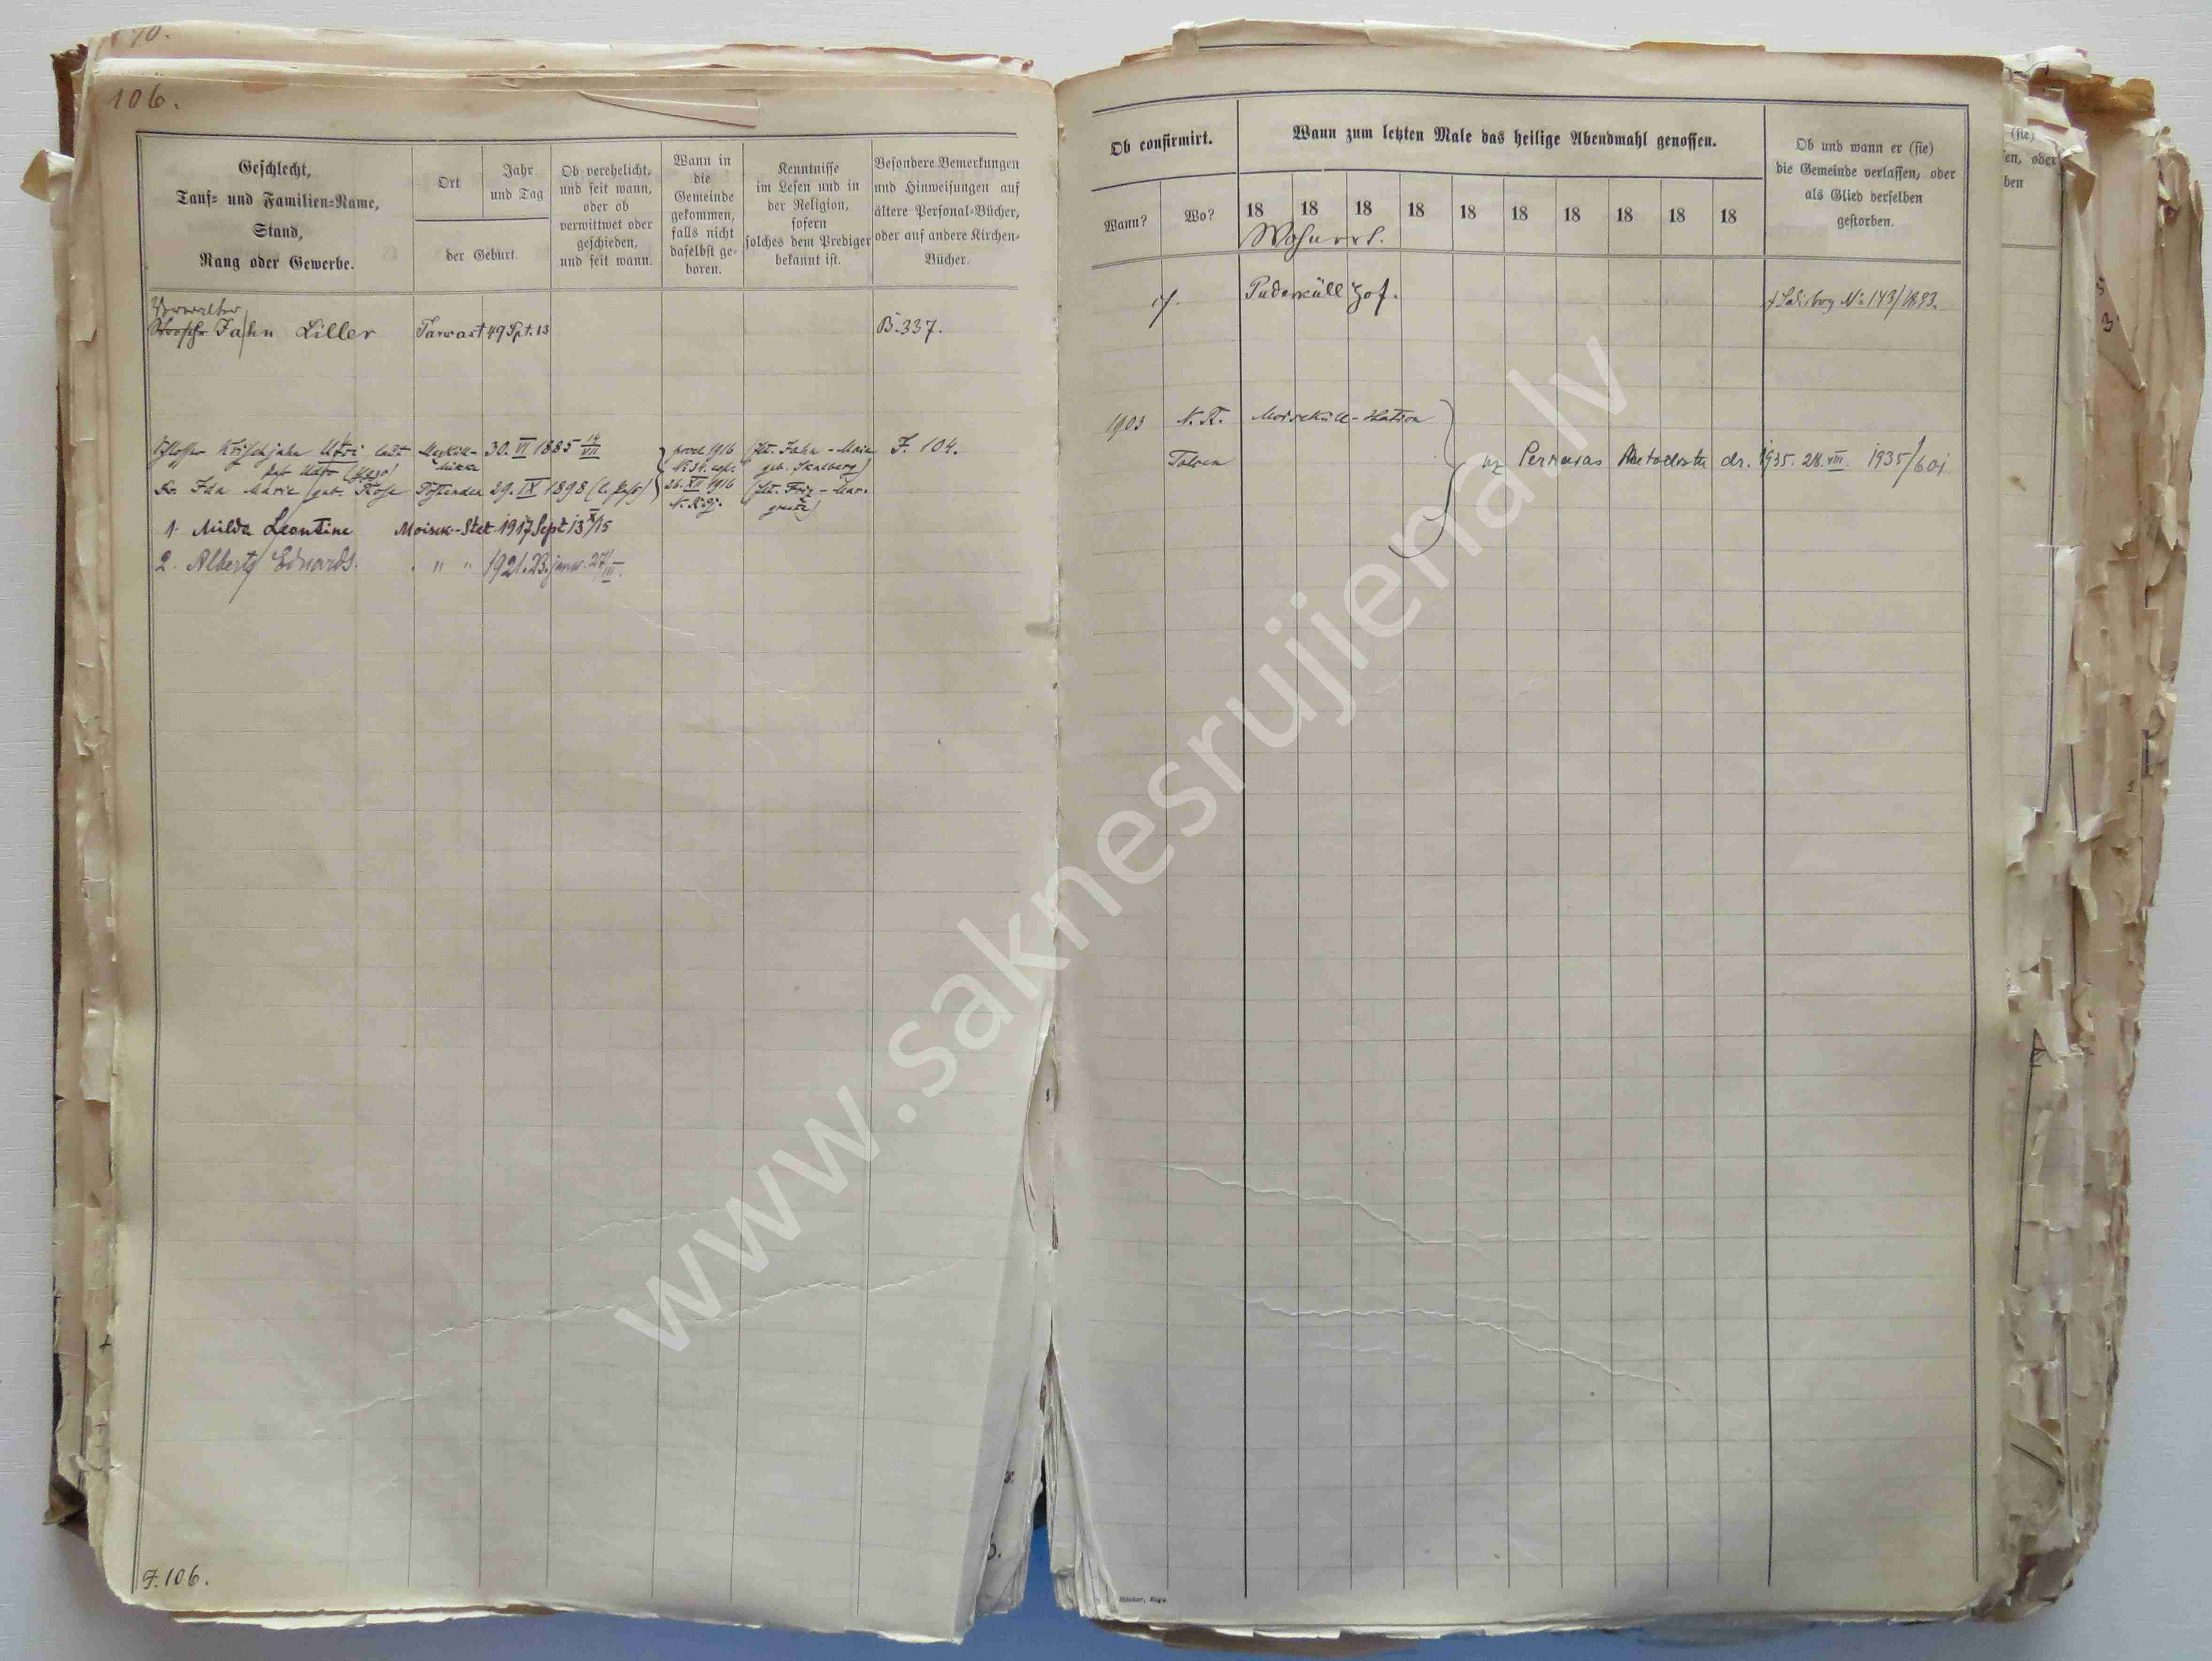 106.
Geschlecht,
Tauf- und Familien-Name,
Stand,
Rang oder Gewerbe.
Ort
Jahr
und Tag
der Geburt.
Ob verehelicht,
und seit wann,
oder ob
verwittwet oder
geschieden,
und seit wann.
Wann in
die
Gemeinde
gekommen,
falls nicht
daselbst ge-
boren.
Kenntnisse
im Lesen und in
der Religion,
sofern
solches dem Prediger
bekannt ist.
Besondere Bemerkungen
und Hinweisungen auf
ältere Personal-Bücher,
oder auf andere Kirchen-
Bücher.
Verwalter
Jahn Liller Tarwast 49 Spt. 13 B. 337.
Krischjahn Utri 30. VI 1885 14/VII procl. 1916 Jahn - Marie F. 104.
geb. Skalberg)
Fr. Ida Marie geb. Rose 29. IX 1898 26. XII 1916
1. Milda Leontine Moisek.-Stat. 1917 Sept 13 X/15
2. Alberts Eduards. " " 1921. 23. janw. 27/III.
F. 106.
Ob confirmirt.
Wann?
Wo?
Wann zum letzten Male das heilige Abendmahl genossen.
18 18 18 18 18 18 18 18 18 18
Wohnort.
Ob und wann er (sie)
die Gemeinde verlassen, oder
als Glied derselben
gestorben.
cf. Puderküll Hof. Salisburg № 143/1893.
1903 N. R. Moiseküll-Station
Talsen uz Pernavas Metodistu dr. 1935. 28. VIII. 1935/60i
Häcker, Riga.
(sie)
en, oder
ben
www.saknesrujiena.lv